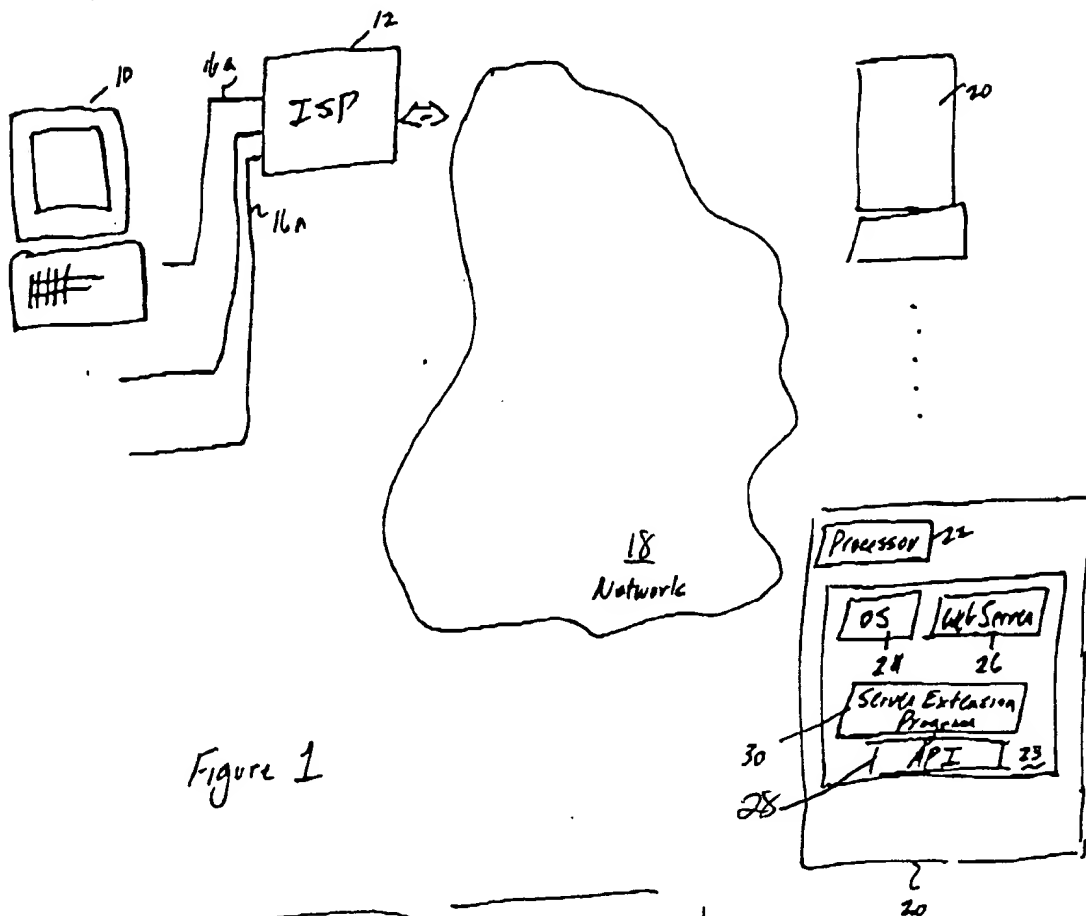 10
12
16a
ISP
16n
20
18
Network
Processor 22
OS
Web Server
24
26
Server Extension
Program
30
API
23
28
20
Figure 1